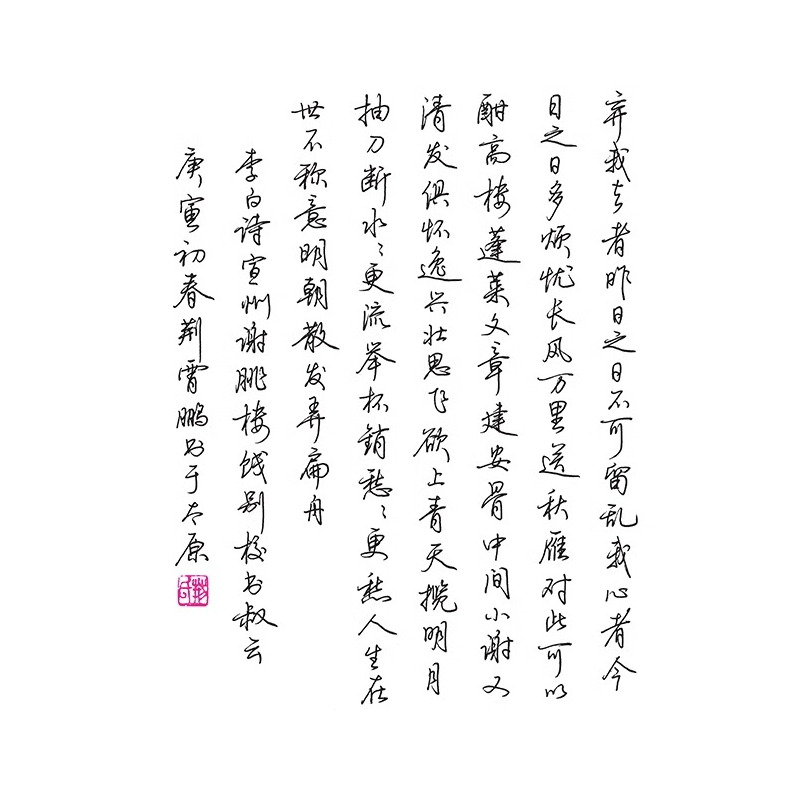 弃我去者昨日之日不可留乱我心者今
日之日多烦忧长风万里送秋雁对此可以
酣高楼蓬莱文章建安骨中间小谢又
清发俱怀逸兴壮思飞欲上青天揽明月
抽刀断水〻更流举杯销愁〻更愁人生在
世不称意明朝散发弄扁舟
李白诗宣州谢朓楼饯别校书叔云
庚寅初春荆霄鹏书于太原